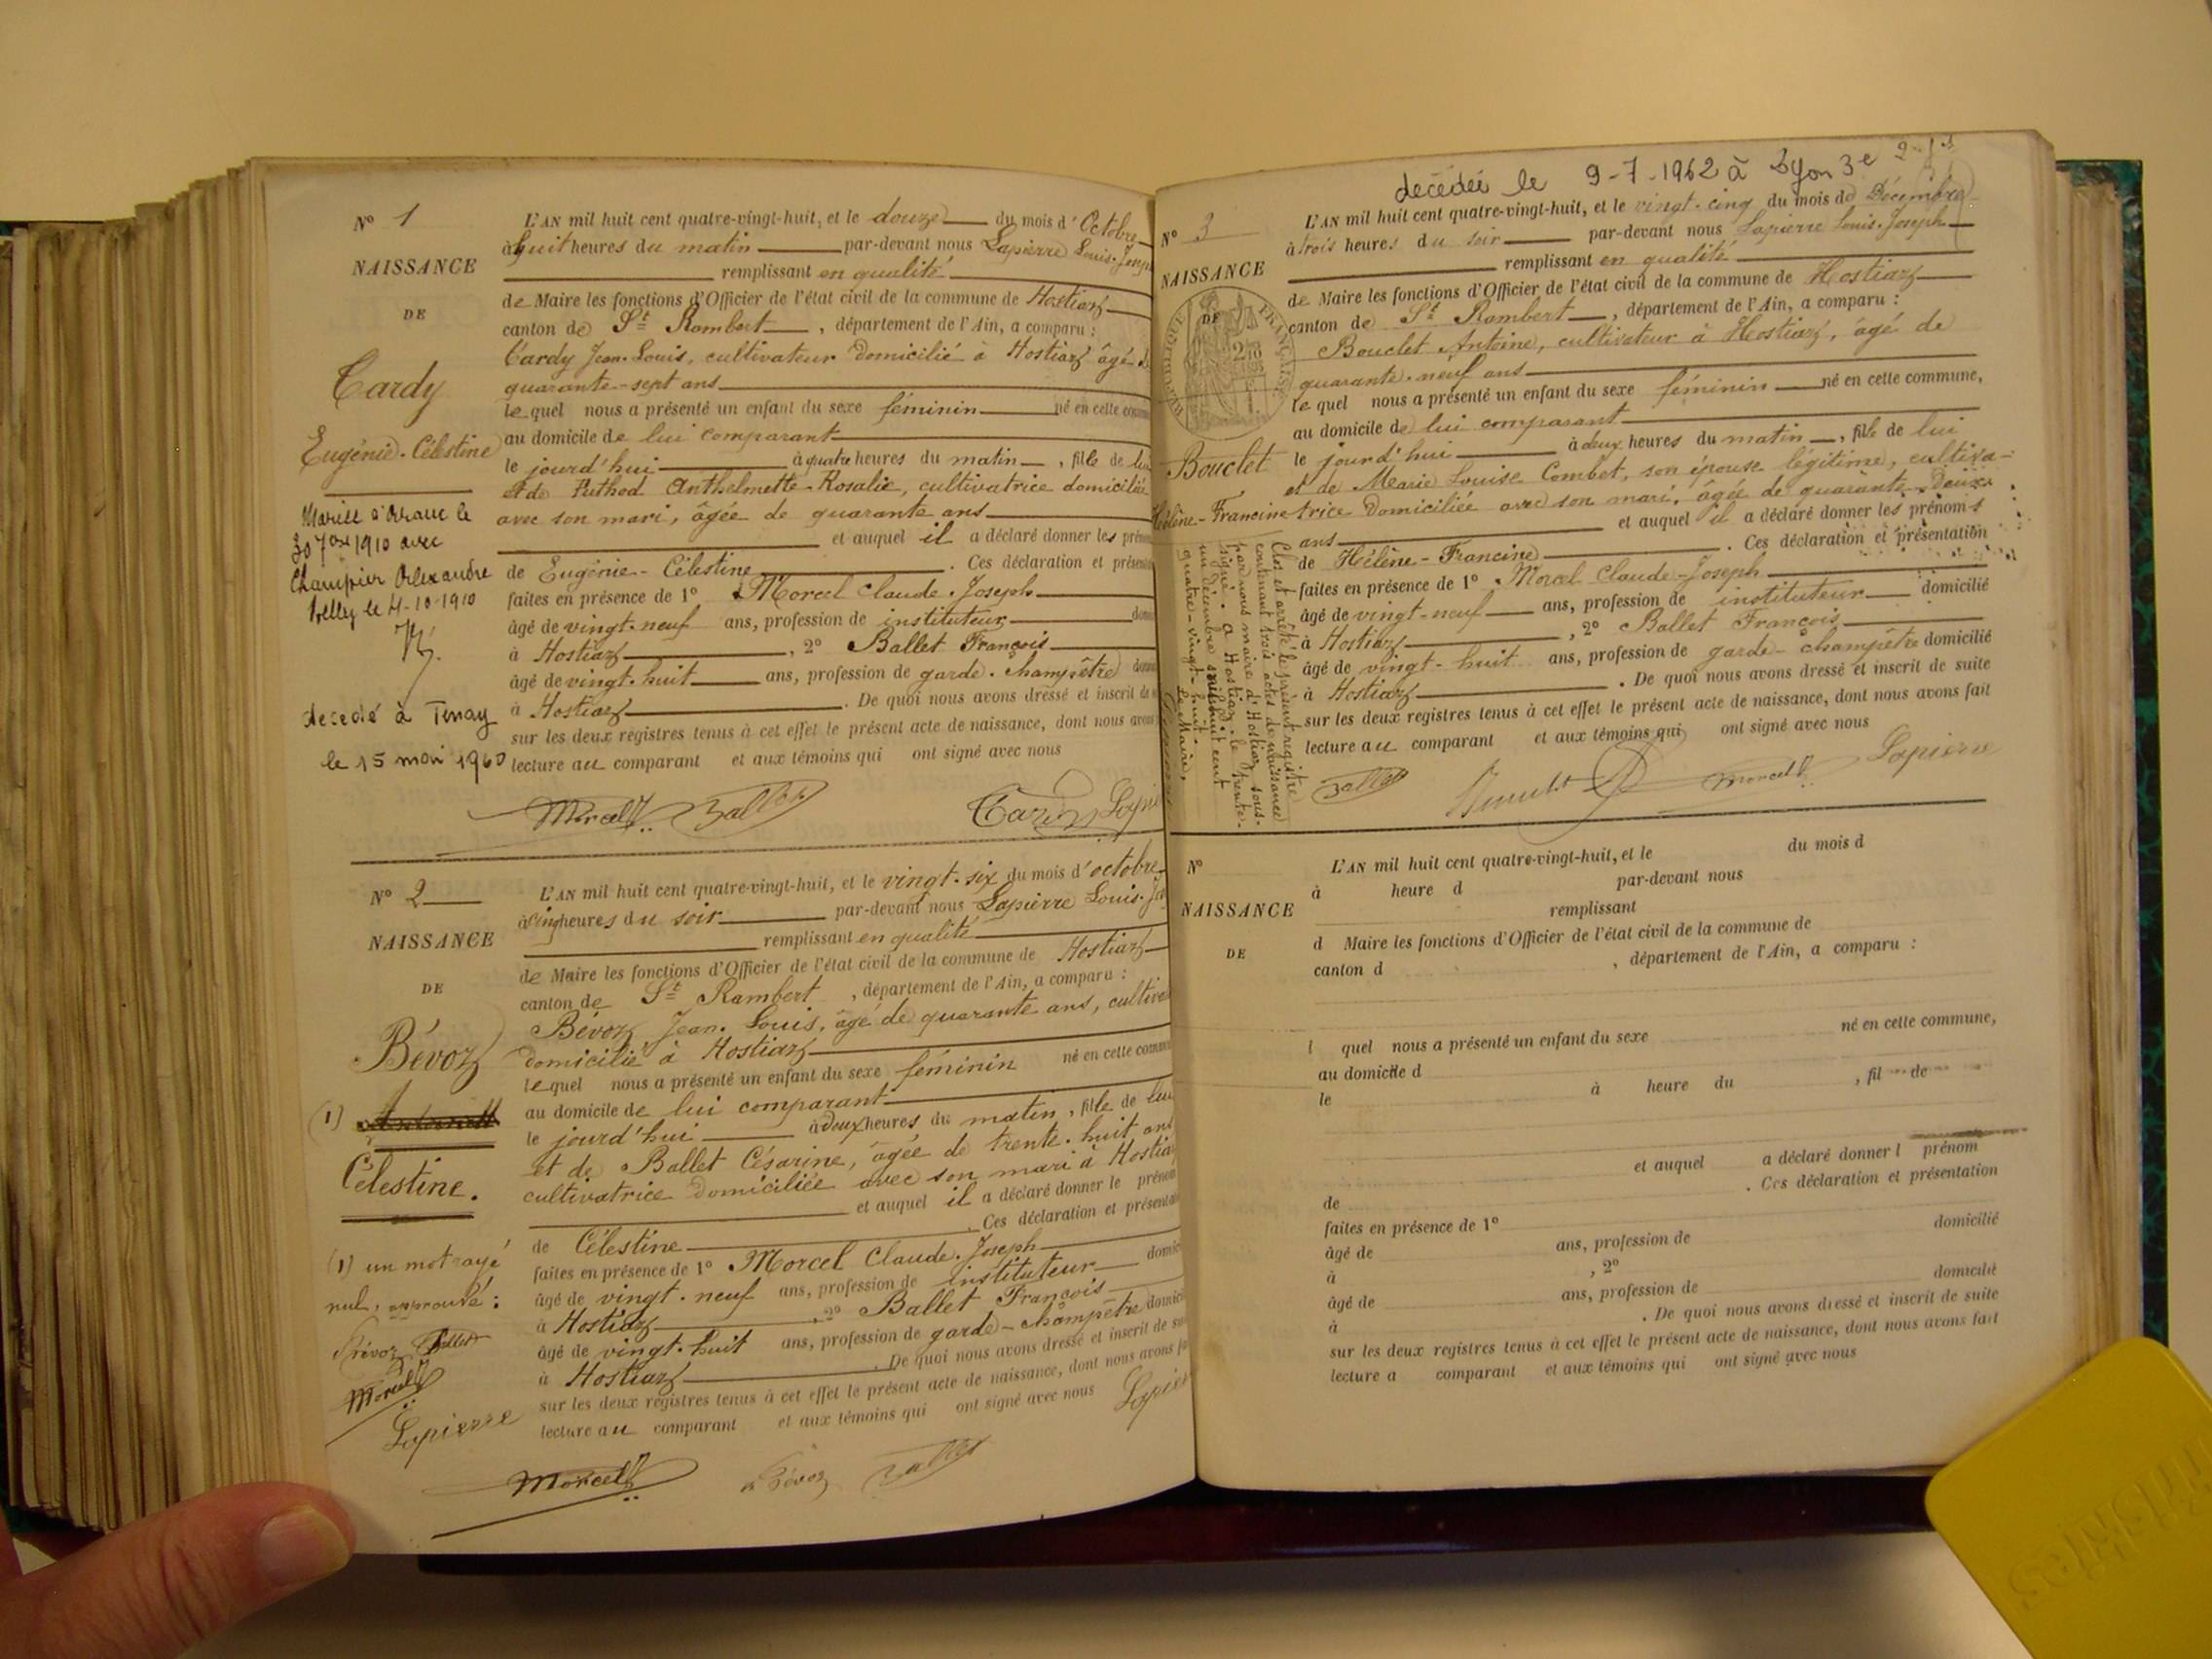 N° 1
NAISSANCE
DE
Cardy
Eugénie-Célestine
Mariée à Aranc le
30 7bre 1910 avec
Champier Alexandre
Belley le 4-10-1910
décédé à Tenay
le 15 mai 1960
L'AN mil huit cent quatre-vingt-huit, et le douze du mois d'Octobre
à huit heures du matin par-devant nous Lapierre Louis-Josep
remplissant en qualité
de Maire les fonctions d'Officier de l'état civil de la commune de Hostiaz
canton de St Rambert, département de l'Ain, a comparu :
Cardy Jean-Louis, cultivateur domicilié à Hostiaz âgé de
quarante-sept ans
lequel nous a présenté un enfant du sexe féminin né en cette comm
au domicile de lui comparant
le jourd'hui à quatre heures du matin, fille de lui
et de Puthod Anthelmette-Rosalie, cultivatrice domiciliée
avec son mari, âgée de quarante ans
et auquel il a déclaré donner les prén
de Eugénie-Célestine. Ces déclaration et présen
faites en présence de 1° Morcel Claude-Joseph
âgé de vingt-neuf ans, profession de instituteur domi
à Hostiaz, 2° Ballet François
âgé de vingt-huit ans, profession de garde-champêtre dom
à Hostiaz. De quoi nous avons dressé et inscrit de s
sur les deux registres tenus à cet effet le présent acte de naissance, dont nous avons
lecture au comparant et aux témoins qui ont signé avec nous
Morcel Ballet Cardy Lapie
N° 2
NAISSANCE
DE
Bévoz
(1)
Célestine.
(1) un mot rayé
nul, approuvé :
Bévoz Ballet
Morcel
Lapierre
L'AN mil huit cent quatre-vingt-huit, et le vingt-six du mois d'octobre
à cinq heures du soir par-devant nous Lapierre Louis-Jo
remplissant en qualité
de Maire les fonctions d'Officier de l'état civil de la commune de Hostiaz
canton de St Rambert, département de l'Ain, a comparu :
Bévoz Jean-Louis, âgé de quarante ans, cultiva
domicilié à Hostiaz
lequel nous a présenté un enfant du sexe féminin né en cette comm
au domicile de lui comparant
le jourd'hui à deux heures du matin, fille de lui
et de Ballet Césarine, âgée de trente-huit ans
cultivatrice domiciliée avec son mari à Hostiaz
et auquel il a déclaré donner le prénom
de Célestine. Ces déclaration et présenta
faites en présence de 1° Morcel Claude-Joseph
âgé de vingt-neuf ans, profession de instituteur domic
à Hostiaz, 2° Ballet François
âgé de vingt-huit ans, profession de garde-champêtre domic
à Hostiaz. De quoi nous avons dressé et inscrit de su
sur les deux registres tenus à cet effet le présent acte de naissance, dont nous avons fa
lecture au comparant et aux témoins qui ont signé avec nous Lapier
Morcel Bévoz Ballet
décédée le 9-7-1962 à Lyon 3e
N° 3
NAISSANCE
DE
RÉPUBLIQUE FRANÇAISE
Bouclet
Hélène-Francine
Clos et arrêté le présent registre
contenant trois actes de naissance
par nous maire d'Hostiaz sous-
signé. A Hostiaz, le trente-
un décembre mil huit cent
quatre-vingt-huit
Le Maire,
L'AN mil huit cent quatre-vingt-huit, et le vingt-cinq du mois de Décembre
à trois heures du soir par-devant nous Lapierre Louis-Joseph
remplissant en qualité
de Maire les fonctions d'Officier de l'état civil de la commune de Hostiaz
canton de St Rambert, département de l'Ain, a comparu :
Bouclet Antoine, cultivateur à Hostiaz, âgé de
quarante-neuf ans
lequel nous a présenté un enfant du sexe féminin né en cette commune,
au domicile de lui comparant
le jourd'hui à deux heures du matin, fille de lui
et de Marie Louise Combet, son épouse légitime, cultiva-
trice domiciliée avec son mari, âgée de quarante-deux
ans et auquel il a déclaré donner les prénoms
de Hélène-Francine. Ces déclaration et présentation
faites en présence de 1° Morcel Claude-Joseph
âgé de vingt-neuf ans, profession de instituteur domicilié
à Hostiaz, 2° Ballet François
âgé de vingt-huit ans, profession de garde-champêtre domicilié
à Hostiaz. De quoi nous avons dressé et inscrit de suite
sur les deux registres tenus à cet effet le présent acte de naissance, dont nous avons fait
lecture au comparant et aux témoins qui ont signé avec nous
Ballet Morcel Lapierre
N°
NAISSANCE
DE
L'AN mil huit cent quatre-vingt-huit, et le du mois d
à heure d par-devant nous
remplissant
d Maire les fonctions d'Officier de l'état civil de la commune de
canton d , département de l'Ain, a comparu :
l quel nous a présenté un enfant du sexe né en cette commune,
au domicile d
le à heure du , fil de
et auquel a déclaré donner l prénom
de . Ces déclaration et présentation
faites en présence de 1°
âgé de ans, profession de domicilié
à , 2°
âgé de ans, profession de domicilié
à . De quoi nous avons dressé et inscrit de suite
sur les deux registres tenus à cet effet le présent acte de naissance, dont nous avons fait
lecture a comparant et aux témoins qui ont signé avec nous